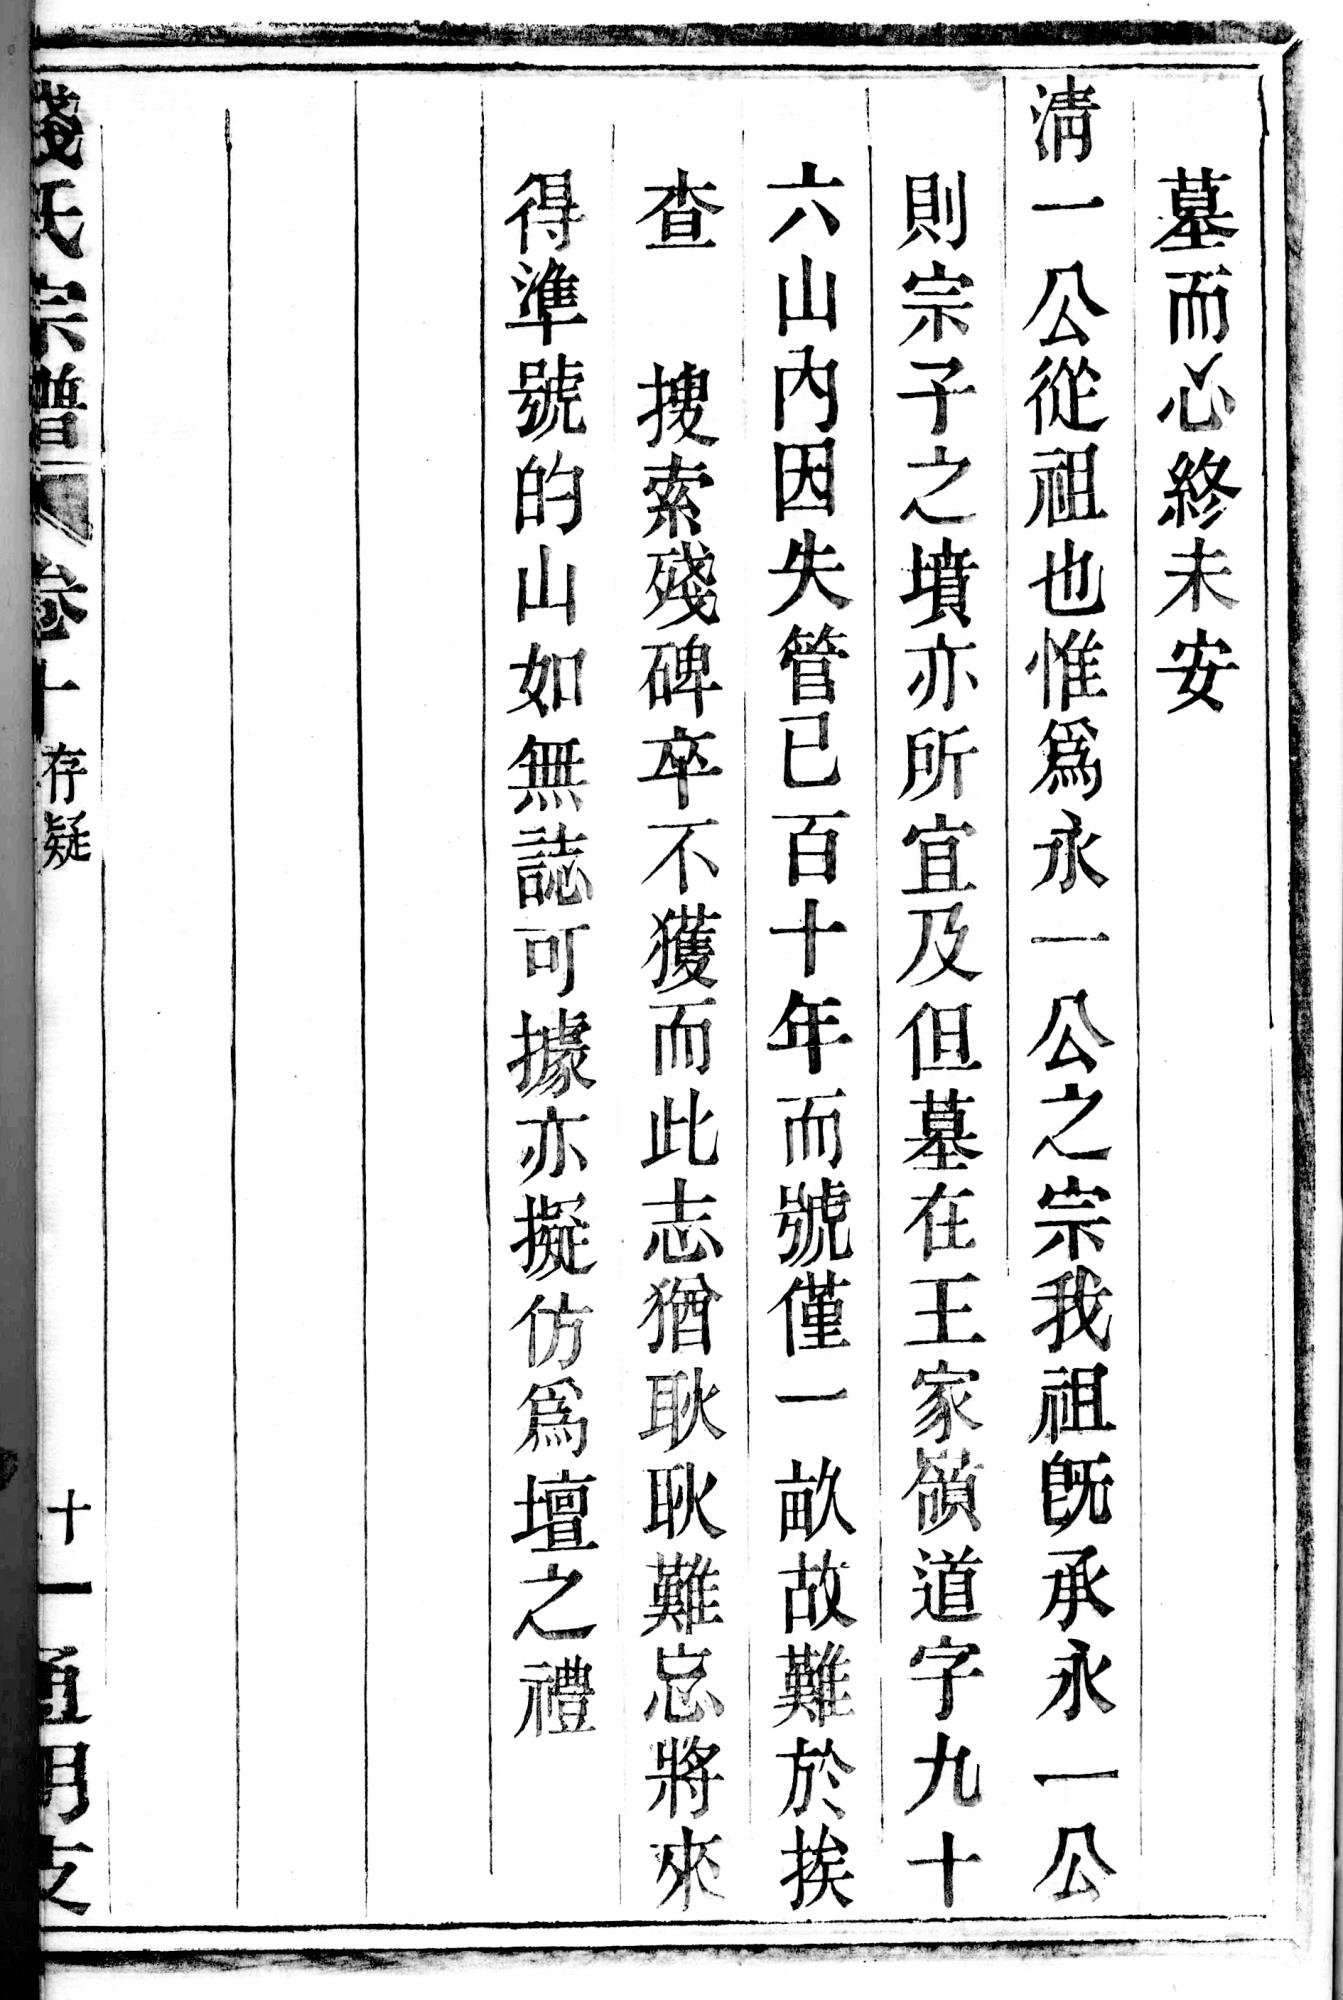 墓而心終未安
清一公從祖也惟爲永一公之宗我祖旣承永一公
則宗子之墳亦所宜及但墓在王家嶺道字九十
六山內因失管已百十年而號僅一畝故難於挨
查　搜索殘碑卒不獲而此志猶耿耿難忘將來
得準號的山如無誌可據亦擬仿爲壇之禮
錢氏宗譜　卷十　存疑　十一　通明支